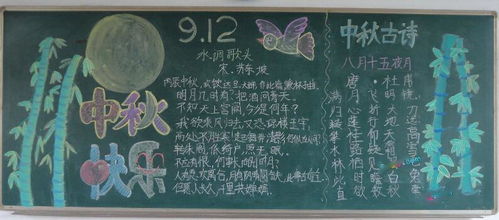 中秋
快乐
9.12
水调歌头
宋.苏东坡
丙辰中秋,欢饮达旦,大醉,作此篇兼怀子由。
明月几时有?把酒问青天。
不知天上宫阙,今夕是何年?
我欲乘风归去,又恐琼楼玉宇,
高处不胜寒。起舞弄清影,何似在人间
转朱阁,低绮户,照无眠。
不应有恨,何事长向别时圆?
人有悲欢离合,月有阴晴圆缺,此事古难全
但愿人长久,千里共婵娟。
中秋古诗
八月十五夜月
唐·杜甫
满月飞明镜